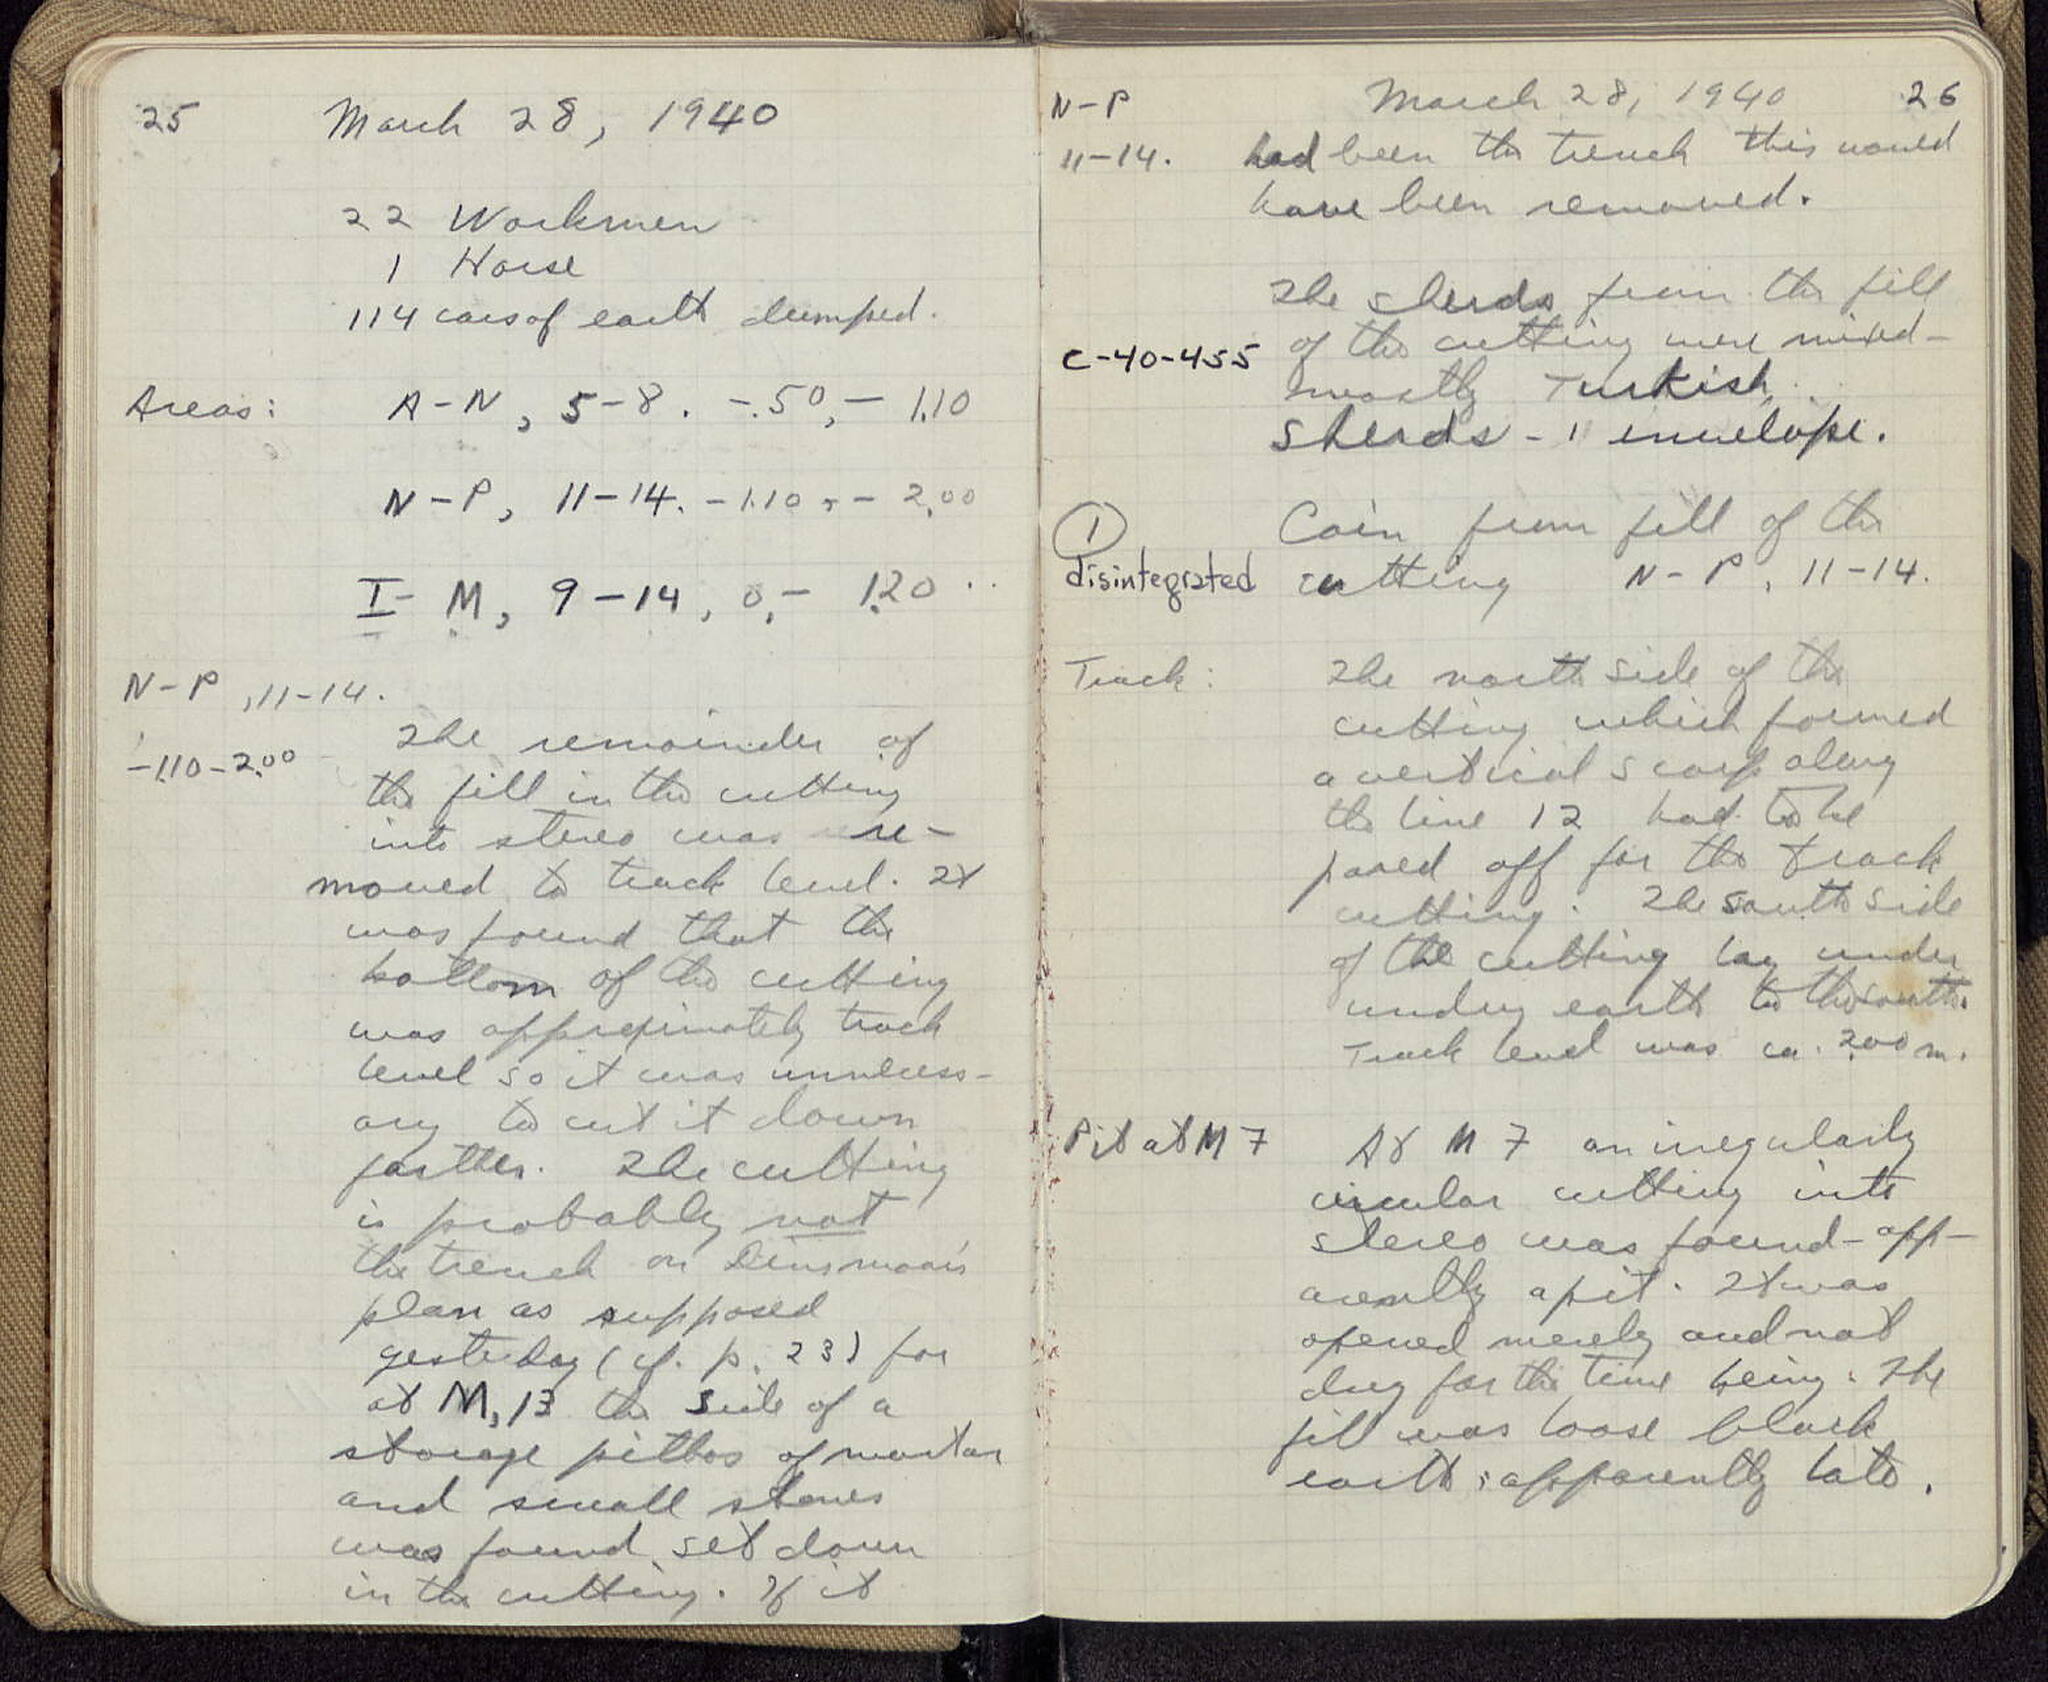 25
March 28, 1940
22 Workmen
1 Horse
114 cars of earth dumped.
Areas: A-N, 5-8. -.50, -1.10
N-P, 11-14. -1.10, -2.00
I-M, 9-14, 0, -1.20
N-P, 11-14.
-1.10-2.00
The remainder of
the fill in the cutting
into stereo was re-
moved to track level. It
was found that the
bottom of the cutting
was approximately track
level so it was unnecess-
ary to cut it down
farther. The cutting
is probably not
the trench on Dinsmoor's
plan as supposed
yesterday (cf. p. 23) for
at M,13 the side of a
storage pithos of mortar
and small stones
was found set down
in the cutting. If it
N-P
11-14.
March 28, 1940
26
had been the trench this would
have been removed.
The sherds from the fill
of the cutting were mixed-
mostly Turkish.
C-40-455
Sherds - 1 envelope.
1
disintegrated
Coin from fill of the
cutting N-P, 11-14.
Track: The north side of the
cutting which formed
a vertical scarp along
the line 12 had to be
pared off for the track
cutting. The south side
of the cutting lay under
undug earth to the south.
Track level was ca. 2.00 m.
Pit at M7 At M7 an irregularly
circular cutting into
stereo was found - app-
arently a pit. It was
opened merely and not
dug for the time being. The
fill was loose black
earth, apparently late.